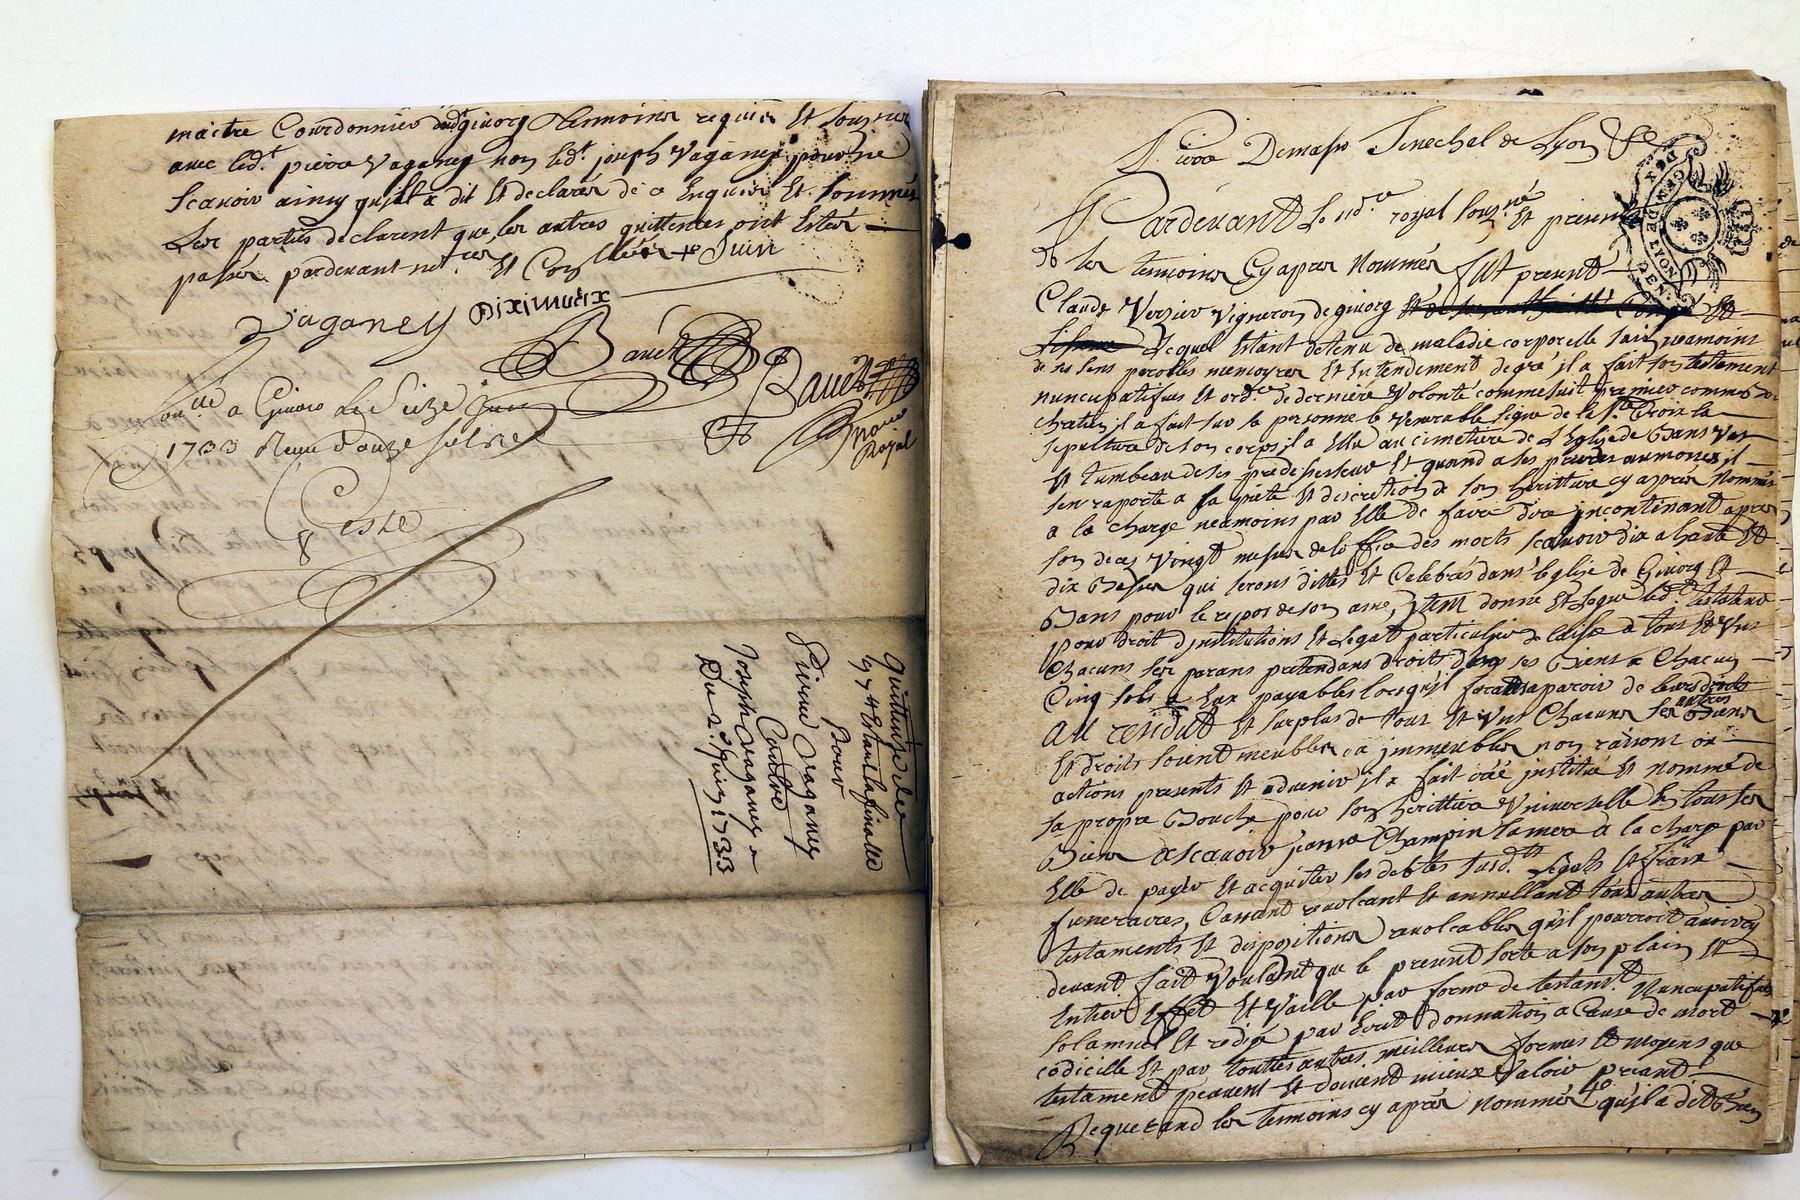 maitre Courdonnier dudt givorg temoins requis Et sousnes
avec ledt. pierre Vaganey non ledt. joseph Vaganey pour ne
scavoir ainsy quill a dit Et declarer de ce Enquis Et sommé
Les parties declarent que les autres quittences ont Esteés
passées pardevant not.res Et
Juin
Vaganey
Bauet
Bauet
Noare
Royal
a Givors le Seize Juin
1733 Reçu douze sols
8
quittance de
1974
Pour
Pierre Vaganey
Contre
Joseph Vaganey
Du 2. Juin 1733
Pierre Senechal de Lyon
GEN. DE LYON
DEN.
Pardevant Le nd.re royal sous.né Et presents
les temoins Cy apres Nommés fut present
Claude Vigneron de givorg
Lequel Estant detenu de maladie corporelle sain neamoins
de ses sens parolles memoyres Et Entendement de gré il a fait son testement
nuncupatif Et ord.ce de derniere Volonté comme suit premier comme bon
chretien il a fait sur sa personne le Venerable signe de la Ste Croix la
sepulture de son corps il a Elu au cimetiere de L'Eglise de Bans
Et tumbeau de ses predesesseur Et quand a ses prieres aumones il
sen raporte a la pieté Et discretion de son herittiere cy aprés Nommée
a la charge neamoins par Elle de faire dire incontenant apres
son deces Vingt messes de loffice des morts scavoir dix a haute Et
dix Basses qui serons dittes Et Celebrés dans leglise de Givorg Et
Bans pour le repos de son ame, Jtem donne Et Legue led.t testateur
pour droit d'jnstitutions Et Legat particulier de laisse a tous Et Uns
Chacuns ses parans pretendans droits dans ses Biens a Chacun
Cinq sols a Eux payables lorsqu'il fera aparoir de leurs droits
au residut Et surplus de tous Et Uns Chacuns ses autres Biens
Et droits soient meubles jmmeubles noms raisons
actions presents Et advenir il a fait creé institué Et nommé de
sa propre Bouche pour son herittiere Universelle En tous ses
Biens ascavoir jeanne Champin sa mere a la charge par
Elle de payer Et acquiter ses debtes susd.ts Legats Et fraix
funeraires, Cassant revolcant Et annullant tous autres
testaments Et dispositions revolcables qu'il pourroit avoir cy
devant fait Voulant que le present sorte a son plain Et
Entier Effet Et Vaille par forme de testam.t Nuncupatif
solamnel Et redigé par Ecrit donnation a Cause de mort
codicille Et par touttes autres meilleurs formes Et moyens que
testament peavent Et doivent mieux Valoir priant
Requerand les temoins cy aprés nommés qu'il a dit Bien